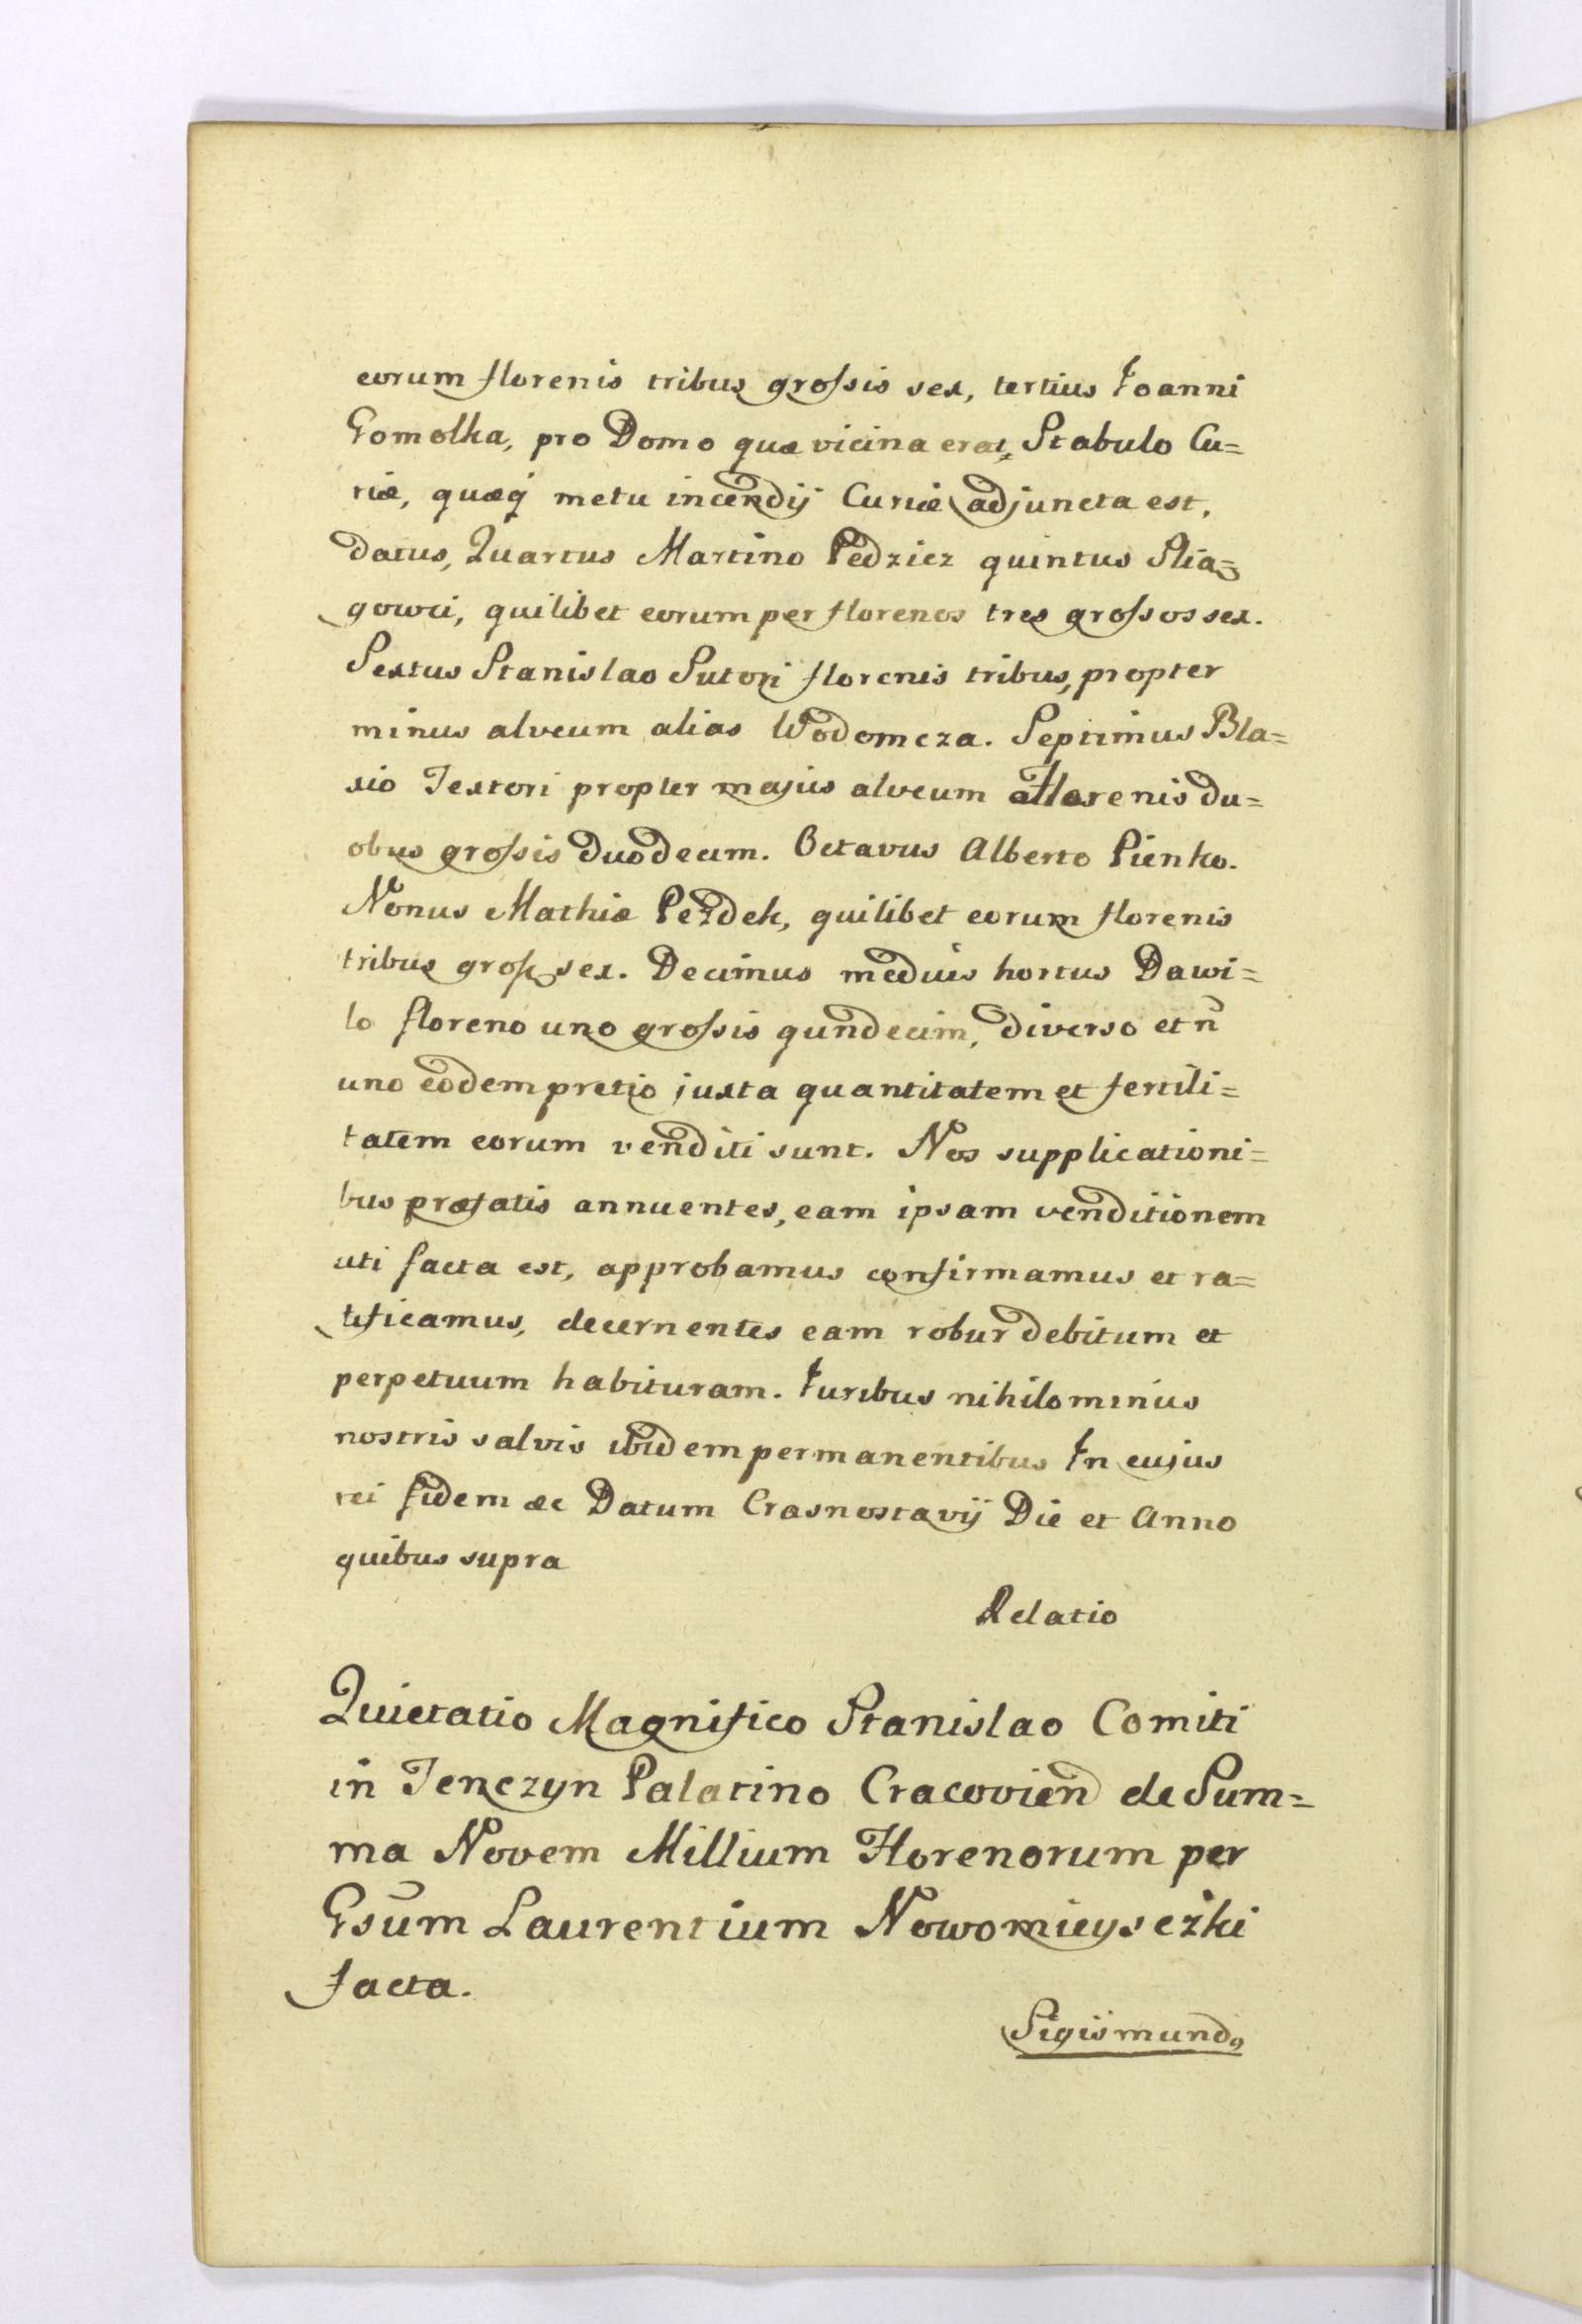 eorum florenis tribus grossis sex, tertius Joanni
Gomolka, pro Domo quæ vicina erat, Stabulo Cu=
riæ, quæq́ metu incendij Curiæ adjuncta est,
datus, Quartus Martino Pedzicz quintus Slia=
gowci, quilibet eorum per florenos tres grossos sex.
Sextus Stanislao Sutori florenis tribus, propter
minus alveum alias Wodomcza. Septimus Bla=
sio Textori propter majus alveum florenis du=
obus grossis duodecim. Octavus Alberto Pienko.
Nonus Mathiæ Pezdek, quilibet eorum florenis
tribus gross sex. Decimus medius hortus Dawi=
lo floreno uno grossis qundecim, diverso et n̄
uno eodem pretio juxta quantitatem et fertili=
tatem eorum venditi sunt. Nos supplicationi=
bus præfatis annuentes, eam ipsam venditionem
uti facta est, approbamus confirmamus et ra=
tificamus, decernentes eam robur debitum et
perpetuum habituram. Juribus nihilominus
nostris salvis ibidem permanentibus In cujus
rei fidem æc Datum Crasnostavij Die et Anno
quibus supra
Relatio
Quietatio Magnifico Stanislao Comiti
in Tenczyn Palatino Cracovien de Sum=
ma Novem Millium Florenorum per
Gsum Laurentium Nowomieysczki
facta.
Sigismundꝯ